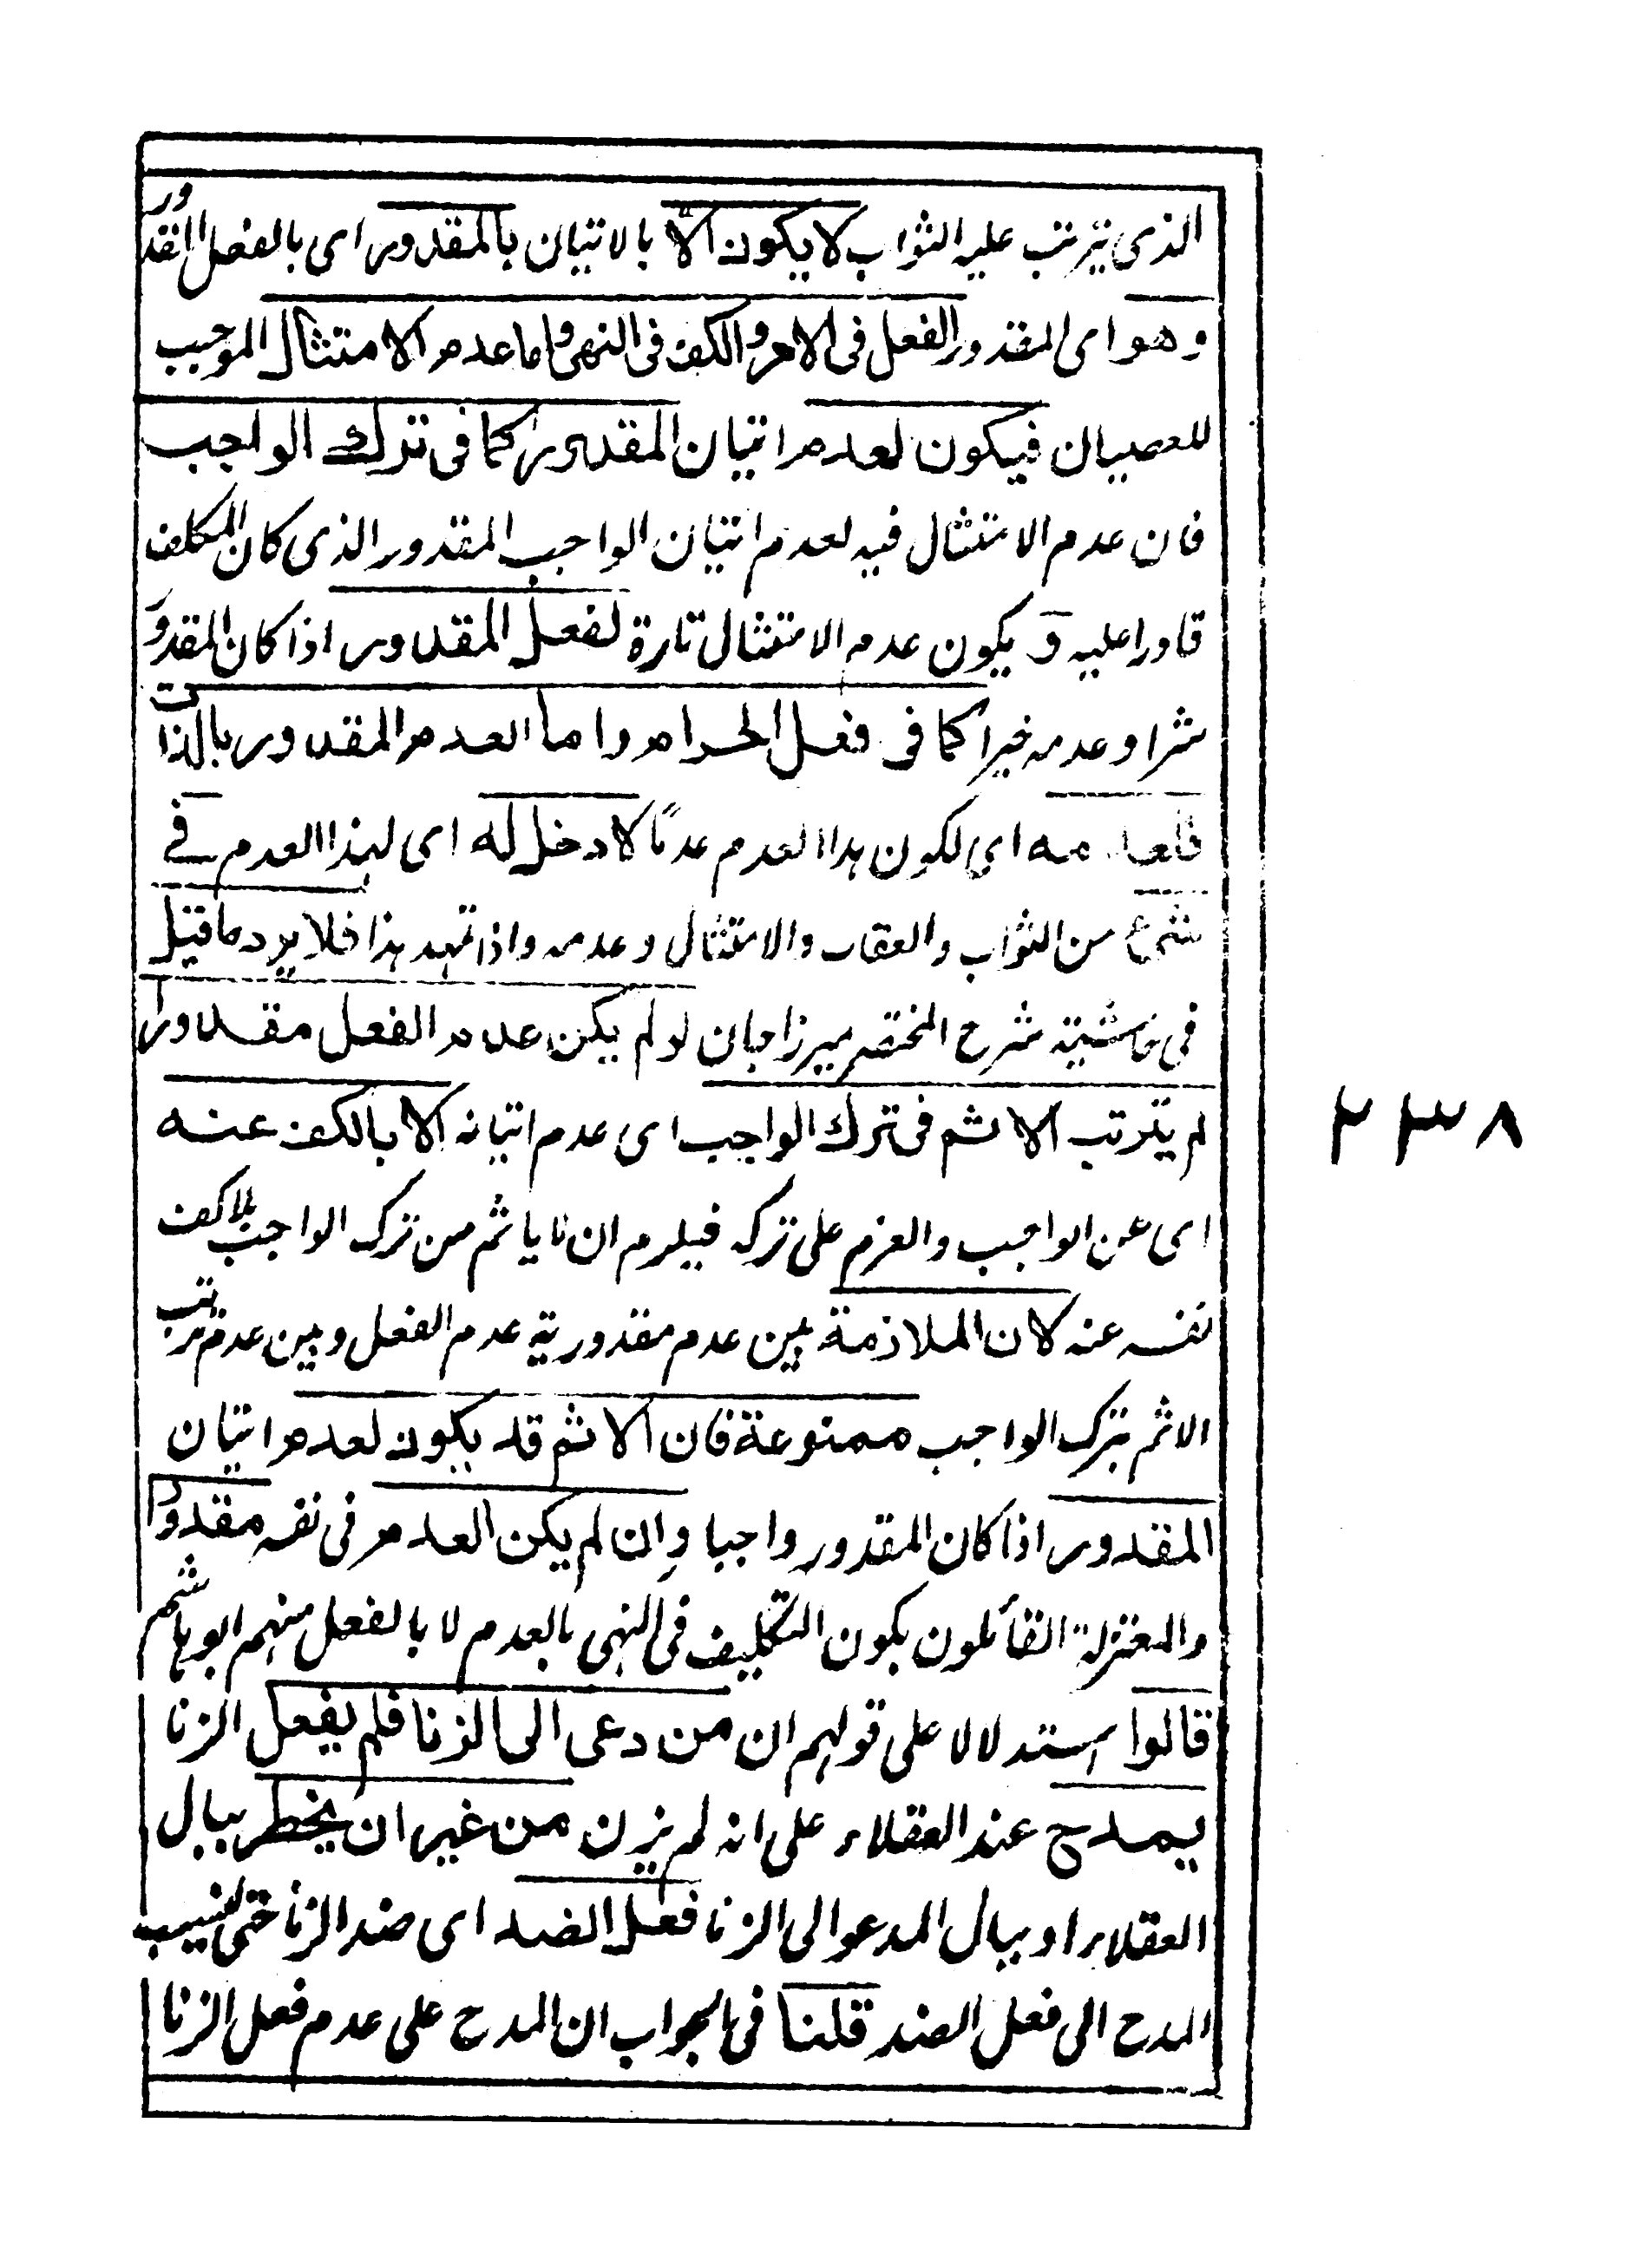 الذى يترتب عليه الثواب لا يكون الا بالاتيان بالمقدور اى بالفعل المقدور
وهو اى المقدور الفعل فى الامر والكف فى النهى واما عدم الامتثال الموجب
للعصيان فيكون لعدم اتيان المقدور كما فى ترك الواجب
فان عدم الامتثال فيه لعدم اتيان الواجب المقدور الذى كان المكلف
قادرا عليه و يكون عدم الامتثال تارة لفعل المقدور اذا كان المقدور
شرا وعدمه خيرا كما فى فعل الحرام واما العدم المقدور بالذات
فلعدمه اى لكون هذا العدم عدمًا لا دخل له اى لهذا العدم فے
شرع من الثواب والعقاب والامتثال وعدمه واذا تمهد هذا فلا يرد ما قيل
فى حاشية شرح المختصر ميرزاجان لو لم يكن عدم الفعل مقدورا
لم يترتب الاثم فى ترك الواجب اى عدم اتيانه الا بالكف عنه
اى عن الواجب والعزم على تركه فيلزم ان لا ياثم من ترك الواجب بلا كف
نفسه عنه لان الملازمة بين عدم مقدورية عدم الفعل وبين عدم ترتب
الاثم بترك الواجب ممنوعة فان الاثم قد يكون لعدم اتيان
المقدور اذا كان المقدور واجبا وان لم يكن العدم فى نفسه مقدورا
والمعتزلة القائلون بكون التكليف فى النهى بالعدم لا بالفعل منهم ابو هاشم
قالوا استدلالا على قولهم ان من دعى الى الزنا فلم يفعل الزنا
يمدح عند العقلاء على انه لم يزن من غير ان يخطر ببال
العقلاء او ببال المدعو الى الزنا فعل الضد اى ضد الزنا حتى ينسب
المدح الى فعل الضد قلنا فى الجواب ان المدح على عدم فعل الزنا
۲۳۸